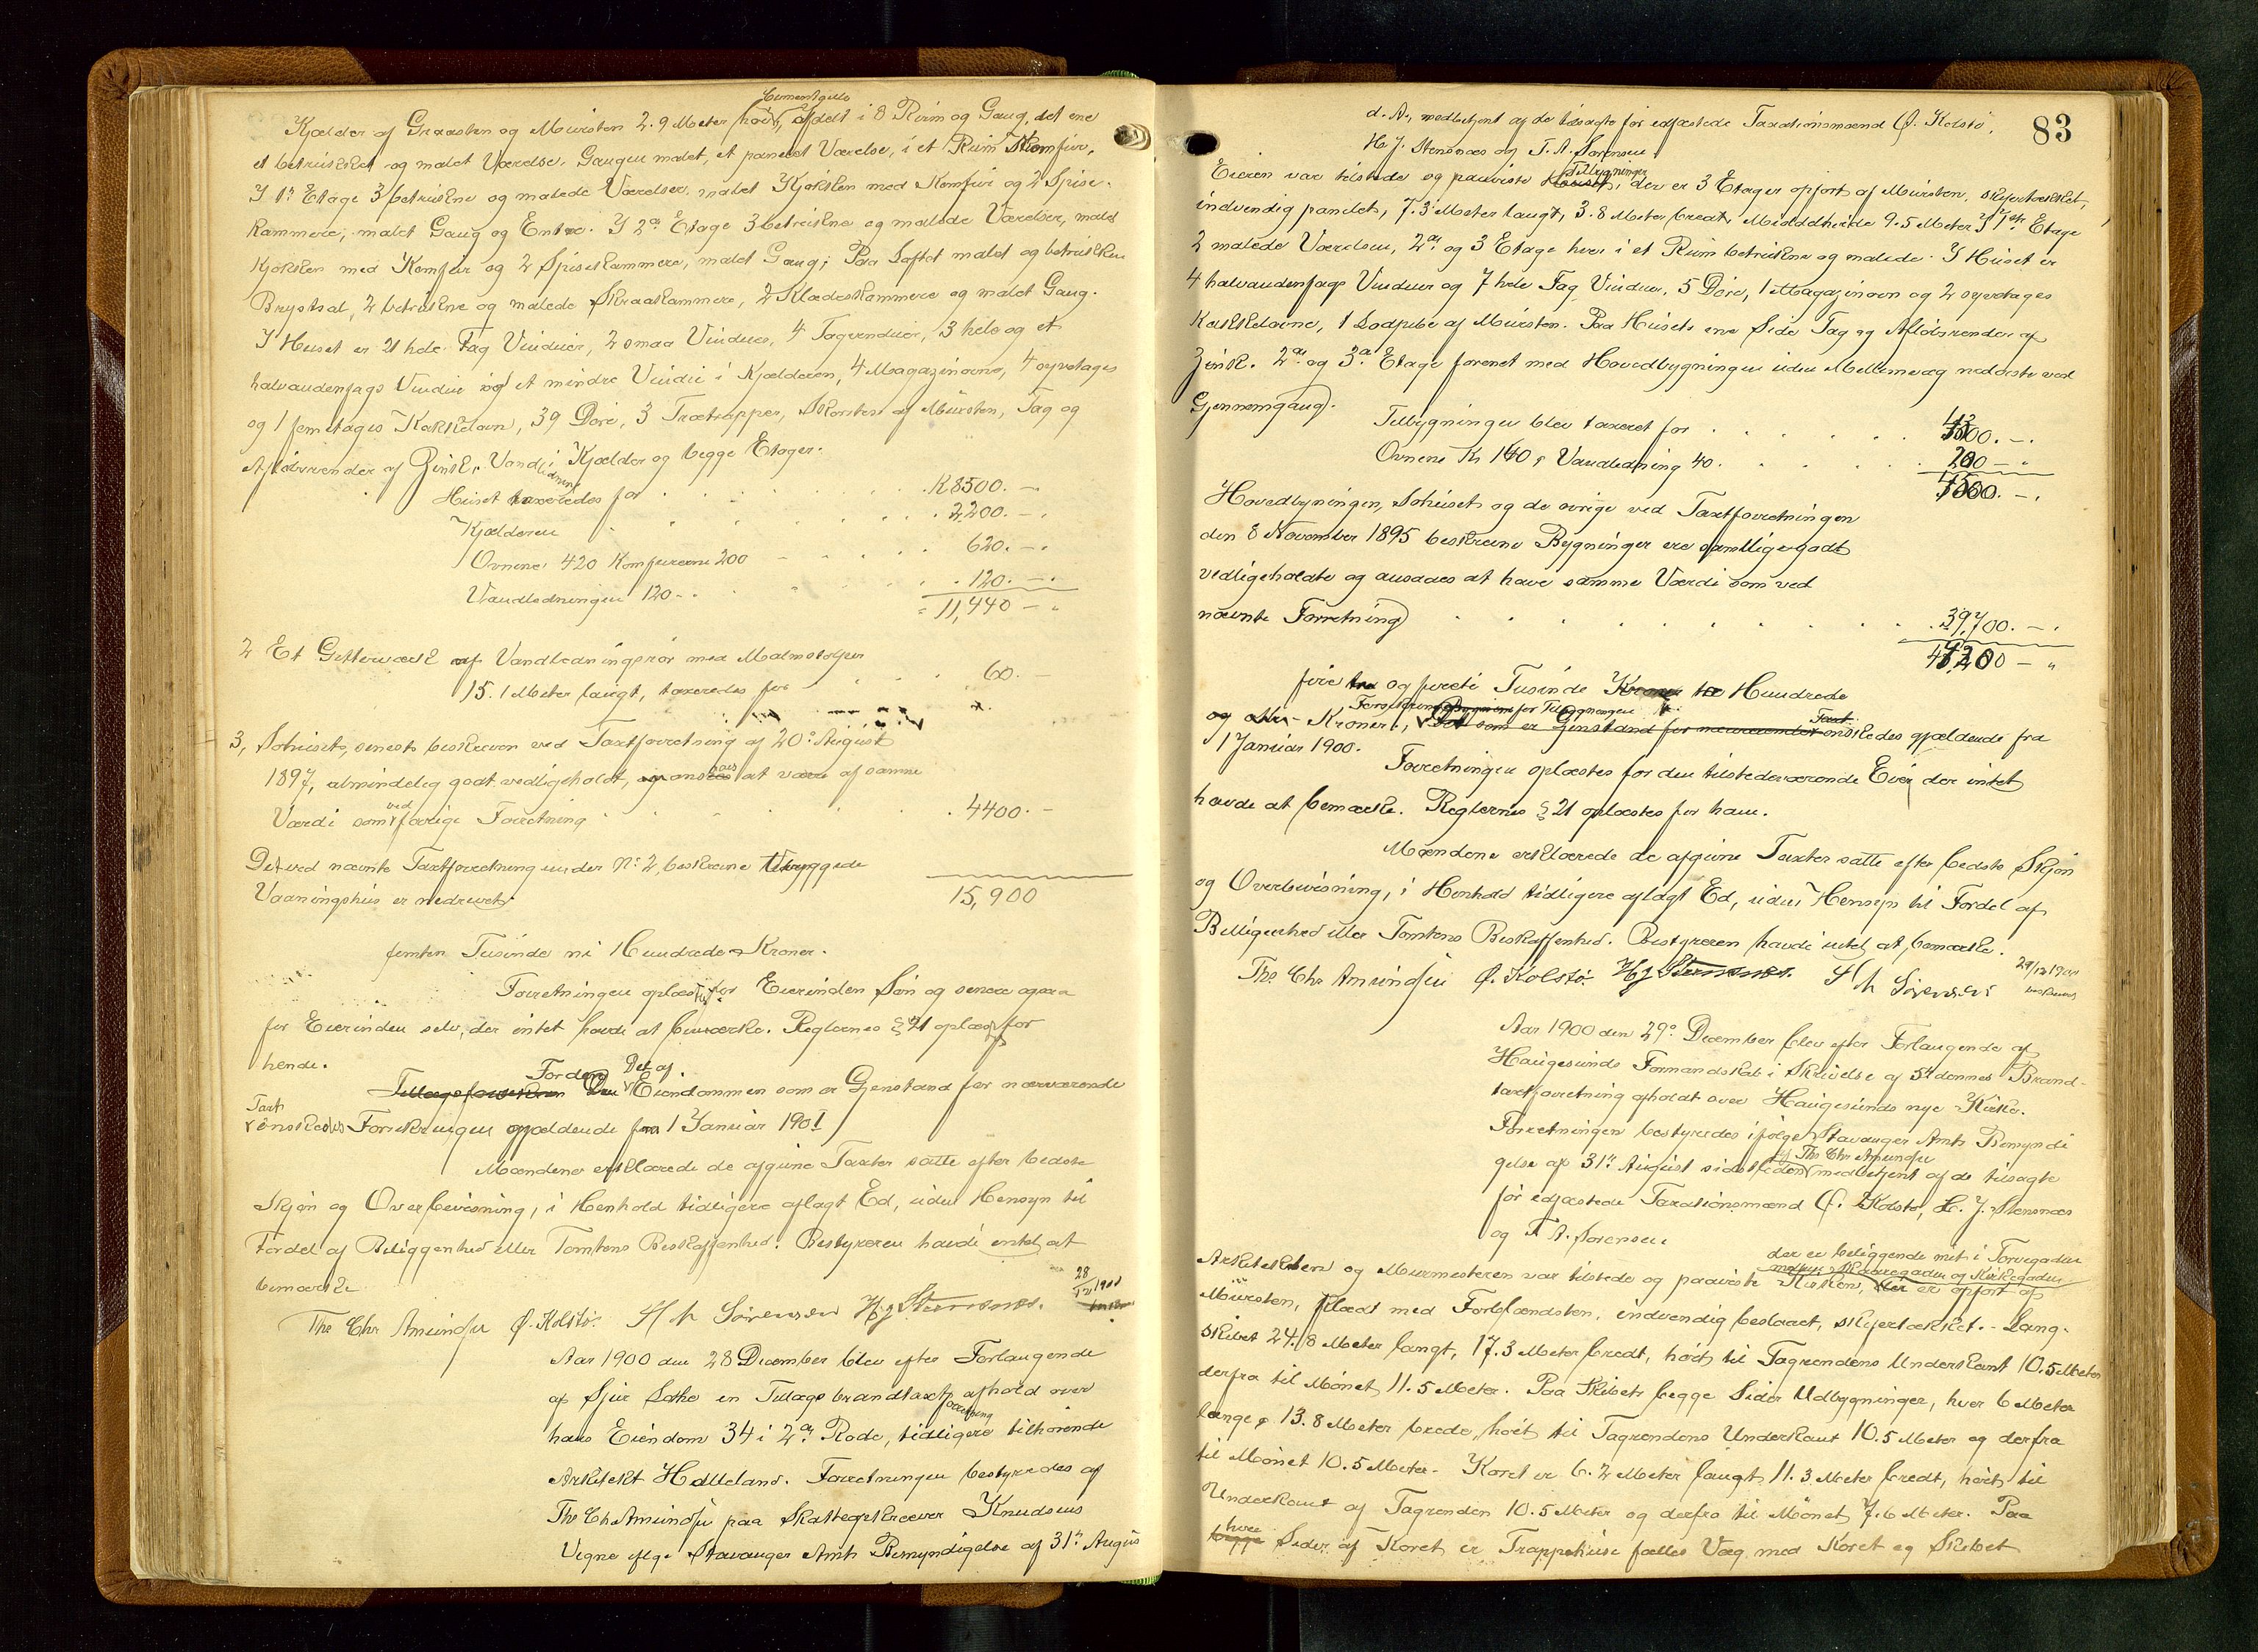 Cementgulv
Kjælder af Graasten og Mursten 2.9 Meter høit, afdelt i 8 Rum og Gang, det ene
et betrukket og malet Værelse. Gangen malet, et panelet Værelse, i et Rum Komfur.
I 1ste Etage 3 betrukne og malede Værelser, malet Kjøkken med Komfur og 2 Spise-
kammere, malet Gang og Entre. I 2den Etage 3 betrukne og malede Værelser, malet
Kjøkken med Komfur og 2 Spisekammere, malet Gang; Paa Loftet malet og betrukken
Brystsal, 2 betrukne og malede Skraakammere, 2 Klædeskammere og malet Gang.
I Huset er 21 hele Fag Vinduer, 2 smaa Vinduer, 4 Tagvinduer, 3 hele og et
halvandenfags Vindue og et mindre Vindue i Kjælderen, 4 Magazinovne, 4 toetages
og 1 femetages Kakkelovn, 39 Døre, 3 Trætrapper, Skorsten af Mursten, Tag og
Afløbsrender af Zink. Vandledning i Kjælder og begge Etager.
Huset taxeredes for . . . . K 8500. -
Kjælderen . . . . 2,200. -
Ovnene 420 Komfurerne 200 - . . . 620. -
Vandledningen 120 - . . . . 120. -
11,440 -
2 Et Gitterværk af Vandledningsrør med Malmstolper
15.1 Meter langt, taxeredes for . . . 60. -
3, Søhuset, senest beskreven ved Taxtforretning af 20de August
1897, almindelig godt vedligeholdt, ansaaes at være af samme
Værdi som ved forrige Forretning . . . 4400. -
Det ved nævnte Taxtforretning under No 2 beskrevne tilbyggede
Vaaningshus er nedrevet.
15,900
femten Tusinde ni Hundrede Kroner.
Forretningen oplæstes for Eierinden Søn og senere ogsaa
for Eierinden selv, der intet havde at bemærke. Reglernes § 21 oplæstes for
hende.
For den Del af
Tillægsforsikren Den Eiendommen som er Gjenstand for nærværende
Taxt
ønskedes Forsikringen gjældende fra 1 Januar 1901
Mændene erklærede de afgivne Taxter satte efter bedste
Skjøn og Overbevisning, i Henhold tidligere aflagt Ed, uden Hensyn til
Fordel af Beliggenhed eller Tomtens Beskaffenhed. Bestyreren havde intet at
bemærke
28/12 1900
Ths Chr Amundsen Ø. Kolstø. T A Sørensen H J Stensnæs.
Aar 1900 den 28 December blev efter Forlangende
af Sjur Lothe en Tillægsbrandtaxtforretning afhold over
hans Eiendom 34 i 2den Rode, tidligere tilhørende
Arkitekt Halleland. Forretningen bestyredes af
Ths Chr Amundsen paa Skatteopkræver Knudsens
Vegne iflge Stavanger Amts Bemyndigelse af 31te Augus
83
d. A., medbetjent af de tilsagte før edfæstede Taxationsmænd Ø. Kolstø,
H. J. Stensnæs og T. A. Sørensen.
Tilbygningen
Eieren var tilstede og paaviste Huset, der er 3 Etager opført af Mursten, skifertækket,
indvendig panelet, 7.3 Meter langt, 3.8 Meter bredt, Middelhøide 9.5 Meter I 1ste Etage
2 malede Værelser, 2den og 3 Etage hver i et Rum betrukne og malede. I Huset er
4 halvandenfags Vinduer og 7 hele Fag Vinduer, 5 Døre, 1 Magazinovn og 2 toetages
Kakkelovne, 1 Lodpibe af Mursten. Paa Husets ene Side Tag og Afløbsrender af
Zink. 2den og 3die Etage forenet med Hovedbygningen uden Mellemvæg nederste ved
Gjennemgang.
Tilbygningen blev taxeret for . . . . 4300. -
Ovnene Kr 160, Vandledning 40. . . . 200 -
4500. -
Hovedbygningen, Søhuset og de øvrige ved Taxtforretningen
den 8 November 1895 beskrevne Bygninger ere samtlige godt
vedligeholdte og ansaaes at have samme Værdi som ved
nævnte Forretning . . . . 39,700. -
44,200 -
fire og førti Tusinde Kroner to Hundrede
Forsikringen for Tilbygningen
og Kroner. Det som er Gjenstand for nærværende Taxt ønskedes gjældende fra
1 Januar 1900.
Forretningen oplæstes for den tilstedeværende Eier der intet
havde at bemærke. Reglernes § 21 oplæstes for ham.
Mændene erklærede de afgivne Taxter satte efter bedste Skjøn
og Overbevisning, i Henhold tidligere aflagt Ed, uden Hensyn til Fordel af
Beliggenhed eller Tomtens Beskaffenhed. Bestyreren havde intet at bemærke.
Ths Chr Amundsen Ø. Kolstø. H J Stensnæs. T A Sørensen
29/12 1900
Aar 1900 den 29de December blev efter Forlangende af
Haugesunds Formandskab i Skrivelse af 5te dennes Brand-
taxtforretning afholdt over Haugesunds nye Kirke.
Forretningen bestyredes ifølge Stavanger Amts Bemyndi
af Ths Chr Amundsen
gelse af 31te August sidstleden medbetjent af de tilsagte
før edfæstede Taxationsmænd Ø. Kolstø, H. J. Stensnæs
og T A. Sørensen.
der er beliggende mit i Torvegaden
mellem Skaaregaden og Kirkegaden
Arkitekten og Murmesteren var tilstede og paaviste Kirken, der er opført af
Mursten, klædt med Forblændsten, indvendig beslaaet, skifertækket. - Lang-
skibet 24.8 Meter langt, 17.3 Meter bredt, høit til Tagrendens Underkant 10.5 Meter
derfra til Mønet 11.5 Meter. Paa Skibets begge Sider Udbygninger, hver 6 Meter
lange, 13.8 Meter brede, høit til Tagrendens Underkant 10.5 Meter og derfra
til Mønet 10.5 Meter. Koret er 6.2 Meter langt 11.3 Meter bredt, høit til
Underkant af Tagrenden 10.5 Meter og derfra til Mønet 7.6 Meter. Paa
hver
begge Sider af Koret er Trappehuse fælles Væg med Koret og Skibet